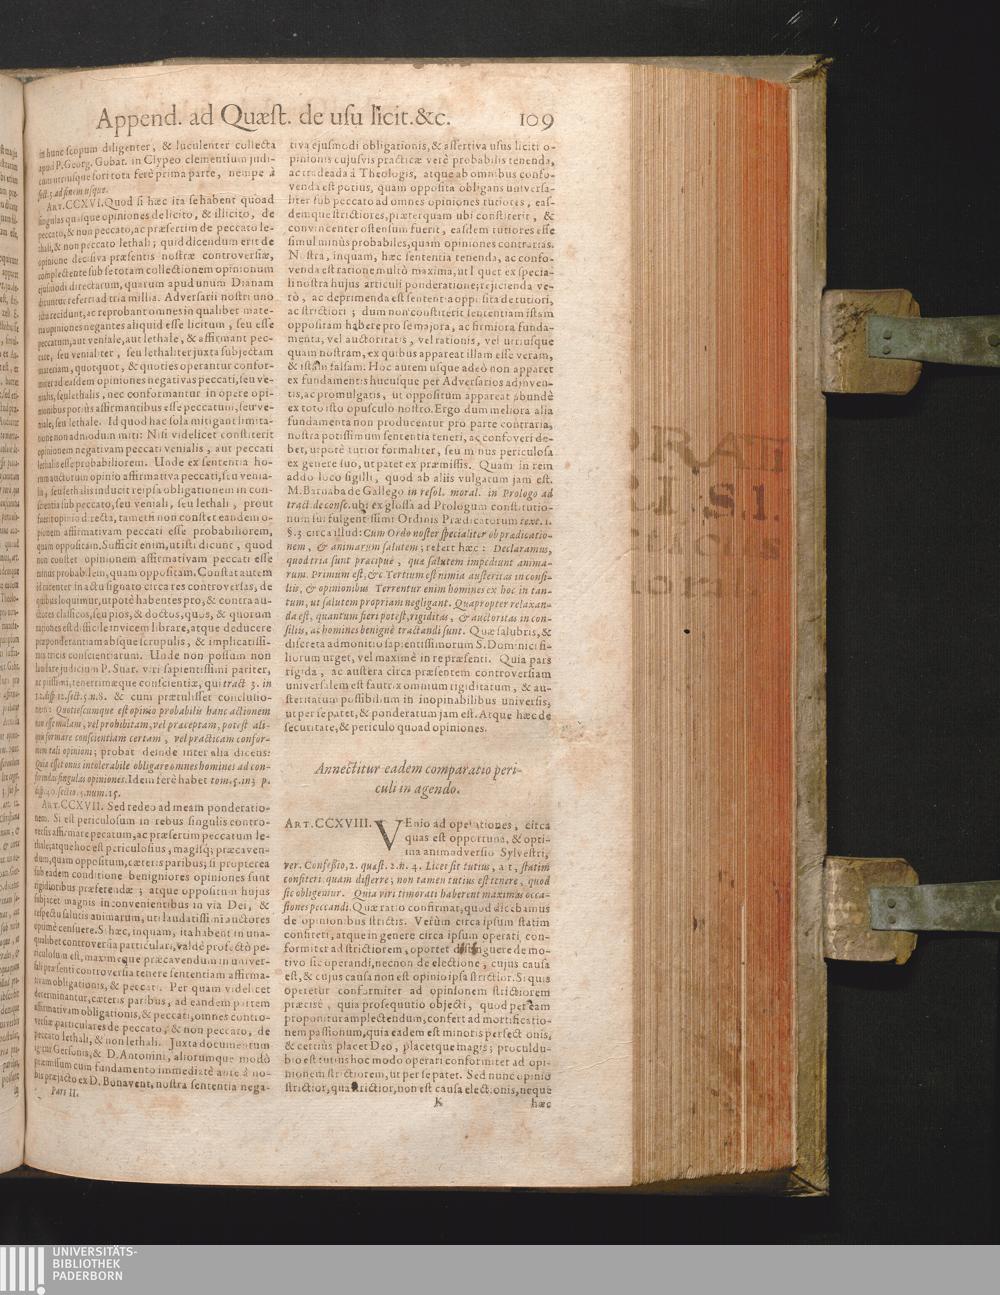 Append. ad Quæst. de usu licit. &c. 109
in hunc scopum diligenter, & luculenter collecta
apud P. Georg. Gobat. in Clypeo clementium judi-
cum utriusque fori tota ferè prima parte, nempe à
sect. 3. ad finem usque.
ART. CCXVI. Quod si hæc ita se habent quoad
singulas quasque opiniones de licito, & illicito, de
peccato, & non peccato, ac præsertim de peccato le-
thali, & non peccato lethali; quid dicendum erit de
opinione decisiva præsentis nostræ controversiæ,
complectente sub se totam collectionem opinionum
ejusmodi directarum, quarum apud unum Dianam
dicuntur referri ad tria millia. Adversarii nostri uno
ictu recidunt, ac reprobant omnes in qualibet mate-
ria opiniones negantes aliquid esse licitum, seu esse
peccatum, aut veniale, aut lethale, & affirmant pec-
care, seu venialiter, seu lethaliter juxta subjectam
materiam, quotquot, & quoties operantur confor-
miter ad easdem opiniones negativas peccati, seu ve-
nialis, seu lethalis, nec conformantur in opere opi-
nionibus potiùs affirmantibus esse peccatum, seu ve-
niale, seu lethale. Id quod hac sola mitigant limita-
tione non admodum miti: Nisi videlicet constiterit
opinionem negativam peccati venialis, aut peccati
lethalis esse probabiliorem. Unde ex sententia ho-
rum auctorum opinio affirmativa peccati, seu venia-
lis, seu lethalis inducit reipsa obligationem in con-
scientia sub peccato, seu veniali, seu lethali, prout
fuerit opinio directa, tametsi non constet eandem o-
pionem affirmativam peccati esse probabiliorem,
quam oppositam. Sufficit enim, ut isti dicunt, quod
non constet opinionem affirmativam peccati esse
minus probabilem, quam oppositam. Constat autem
id scitenter in actu signato circa res controversas, de
quibus loquimur, utpotè habentes pro, & contra au-
ctores classicos, seu pios, & doctos, quos, & quorum
rationes est difficile invicem librare, atque deducere
præponderantiam absque scrupulis, & implicatissi-
mis tricis conscientiarum. Unde non possum non
laudare judicium P. Suar. viri sapientissimi pariter,
ac piissimi, tenerrimæque conscientiæ, qui tract. 3. in
12. disp. 12. sect. 5. n. 8. & cum prætulisset conclusio-
nem: Quotiescumque est opinio probabilis hanc actionem
non esse malam, vel prohibitam, vel præceptam, potest ali-
quis formare conscientiam certam, vel practicam confor-
mem tali opinioni; probat deinde inter alia dicens:
Quia esset onus intolerabile obligare omnes homines ad con-
ferendas singulas opiniones. Idem ferè habet tom. 5. in 3. p.
disp. 40. sectio. 5. num. 15.
ART. CCXVII. Sed redeo ad meam ponderatio-
nem. Si est periculosum in rebus singulis contro-
versis affirmare pecatum, ac præsertim peccatum le-
thale; atque hoc est periculosius, magisq; præcaven-
dum, quàm oppositum, cæteris paribus; si propterea
sub eadem conditione benigniores opiniones sunt
rigidioribus præferendæ; atque oppositum hujus
subjacet magnis inconvenientibus in via Dei, &
respectu salutis animarum, uti laudatissimi auctores
optimè censuere. Si hæc, inquam, ita habent in una-
qualibet controversia particulari, valdè profectò pe-
riculosum est, maximeque præcavendum in univer-
sali præsenti controversia tenere sententiam affirma-
tivam obligationis, & peccati. Per quam videlicet
determinantur, cæteris paribus, ad eandem partem
affirmativam obligationis, & peccati, omnes contro-
versiæ particulares de peccato, & non peccato, de
peccato lethali, & non lethali. Juxta documentum
igitur Gersonis, & D. Antonini, aliorumque modò
præmissum cum fundamento immediatè ante à no-
bis præjacto ex D. Bonavent. nostra sententia nega-
Pars II.
tiva ejusmodi obligationis, & assertiva usus liciti o-
pinionis cujusvis practicæ verè probabilis tenenda,
ac tradenda à Theologis, atque ab omnibus confo-
venda est potius, quàm opposita obligans universa-
liter sub peccato ad omnes opiniones tutiores, eas-
demque strictiores, præterquam ubi constiterit, &
convincenter ostensum fuerit, easdem tutiores esse
simul minùs probabiles, quàm opiniones contrarias.
Nostra, inquam, hæc sententia tenenda, ac confo-
venda est ratione multò maxima, ut liquet ex specia-
li nostra hujus articuli ponderatione; rejicienda ve-
rò, ac deprimenda est sententia opposita de tutiori,
ac strictiori; dum non constiterit sententiam istam
oppositam habere pro se majora, ac firmiora funda-
menta, vel auctoritatis, vel rationis, vel utriusque
quàm nostram, ex quibus appareat illam esse veram,
& istam falsam. Hoc autem usque adeò non apparet
ex fundamentis hucusque per Adversarios adinven-
tis, ac promulgatis, ut oppositum appareat abundè
ex toto isto opusculo nostro. Ergo dum meliora alia
fundamenta non producentur pro parte contraria,
nostra potissimum sententia teneri, ac confoveri de-
bet, utpotè tutior formaliter, seu minus periculosa
ex genere suo, ut patet ex præmissis. Quam in rem
addo loco sigilli, quod ab aliis vulgatum jam est.
M. Barnaba de Gallego in resol. moral. in Prologo ad
tract. de consc. ubi ex glossa ad Prologum constitutio-
num sui fulgentissimi Ordinis Prædicatorum texe. 1.
§. 3. circa illud: Cum Ordo noster specialiter ob prædicatio-
nem, & animarum salutem; refert hæc: Declaramus,
quod tria sunt præcipuè, quæ salutem impediunt anima-
rum. Primum est, &c. Tertium est nimia austeritas in consi-
liis, & opinionibus. Terrentur enim homines ex hoc in tan-
tum, ut salutem propriam negligant. Quapropter relaxan-
da est, quantum fieri potest, rigiditas, & auctoritas in con-
siliis, ac homines benignè tractandi sunt. Quæ salubris, &
discreta admonitio sapientissimorum S. Dominici fi-
liorum urget, vel maximè in re præsenti. Quia pars
rigida, ac austera circa præsentem controversiam
universalem est fautrix omnium rigiditatum, & au-
steritatum possibilium in inopinabilibus universis,
ut per se patet, & ponderatum jam est. Atque hæc de
securitate, & periculo quoad opiniones.
Annectitur eadem comparatio peri-
culi in agendo.
ART. CCXVIII. VEnio ad operationes, circa
quas est opportuna, & opti-
ma animadversio Sylvestri,
ver. Confessio, 2. quæst. 2. n. 4. Licet sit tutius, ait, statim
confiteri, quam differre; non tamen tutius est tenere, quod
sic obligemur. Quia viri timorati haberent maximas occa-
siones peccandi. Quæ ratio confirmat, quod dicebamus
de opinionibus strictis. Verùm circa ipsum statim
confiteri, atque in genere circa ipsum operati con-
formiter ad strictiorem, oportet distinguere de mo-
tivo sic operandi, necnon de electione, cujus causa
est, & cujus causa non est opinio ipsa strictior. Si quis
operetur conformiter ad opinionem strictiorem
præcisè, quia prosequutio objecti, quod per eam
proponitur amplectendum, confert ad mortificatio-
nem passionum, quia eadem est minoris perfectionis,
& certius placet Deo, placetque magis; proculdu-
bio est tutius hoc modo operari conformiter ad opi-
nionem strictiorem, ut per se patet. Sed nunc opinio
strictior, qua strictior, non est causa electionis, neque
K hæc
UNIVERSITÄTS-
BIBLIOTHEK
PADERBORN